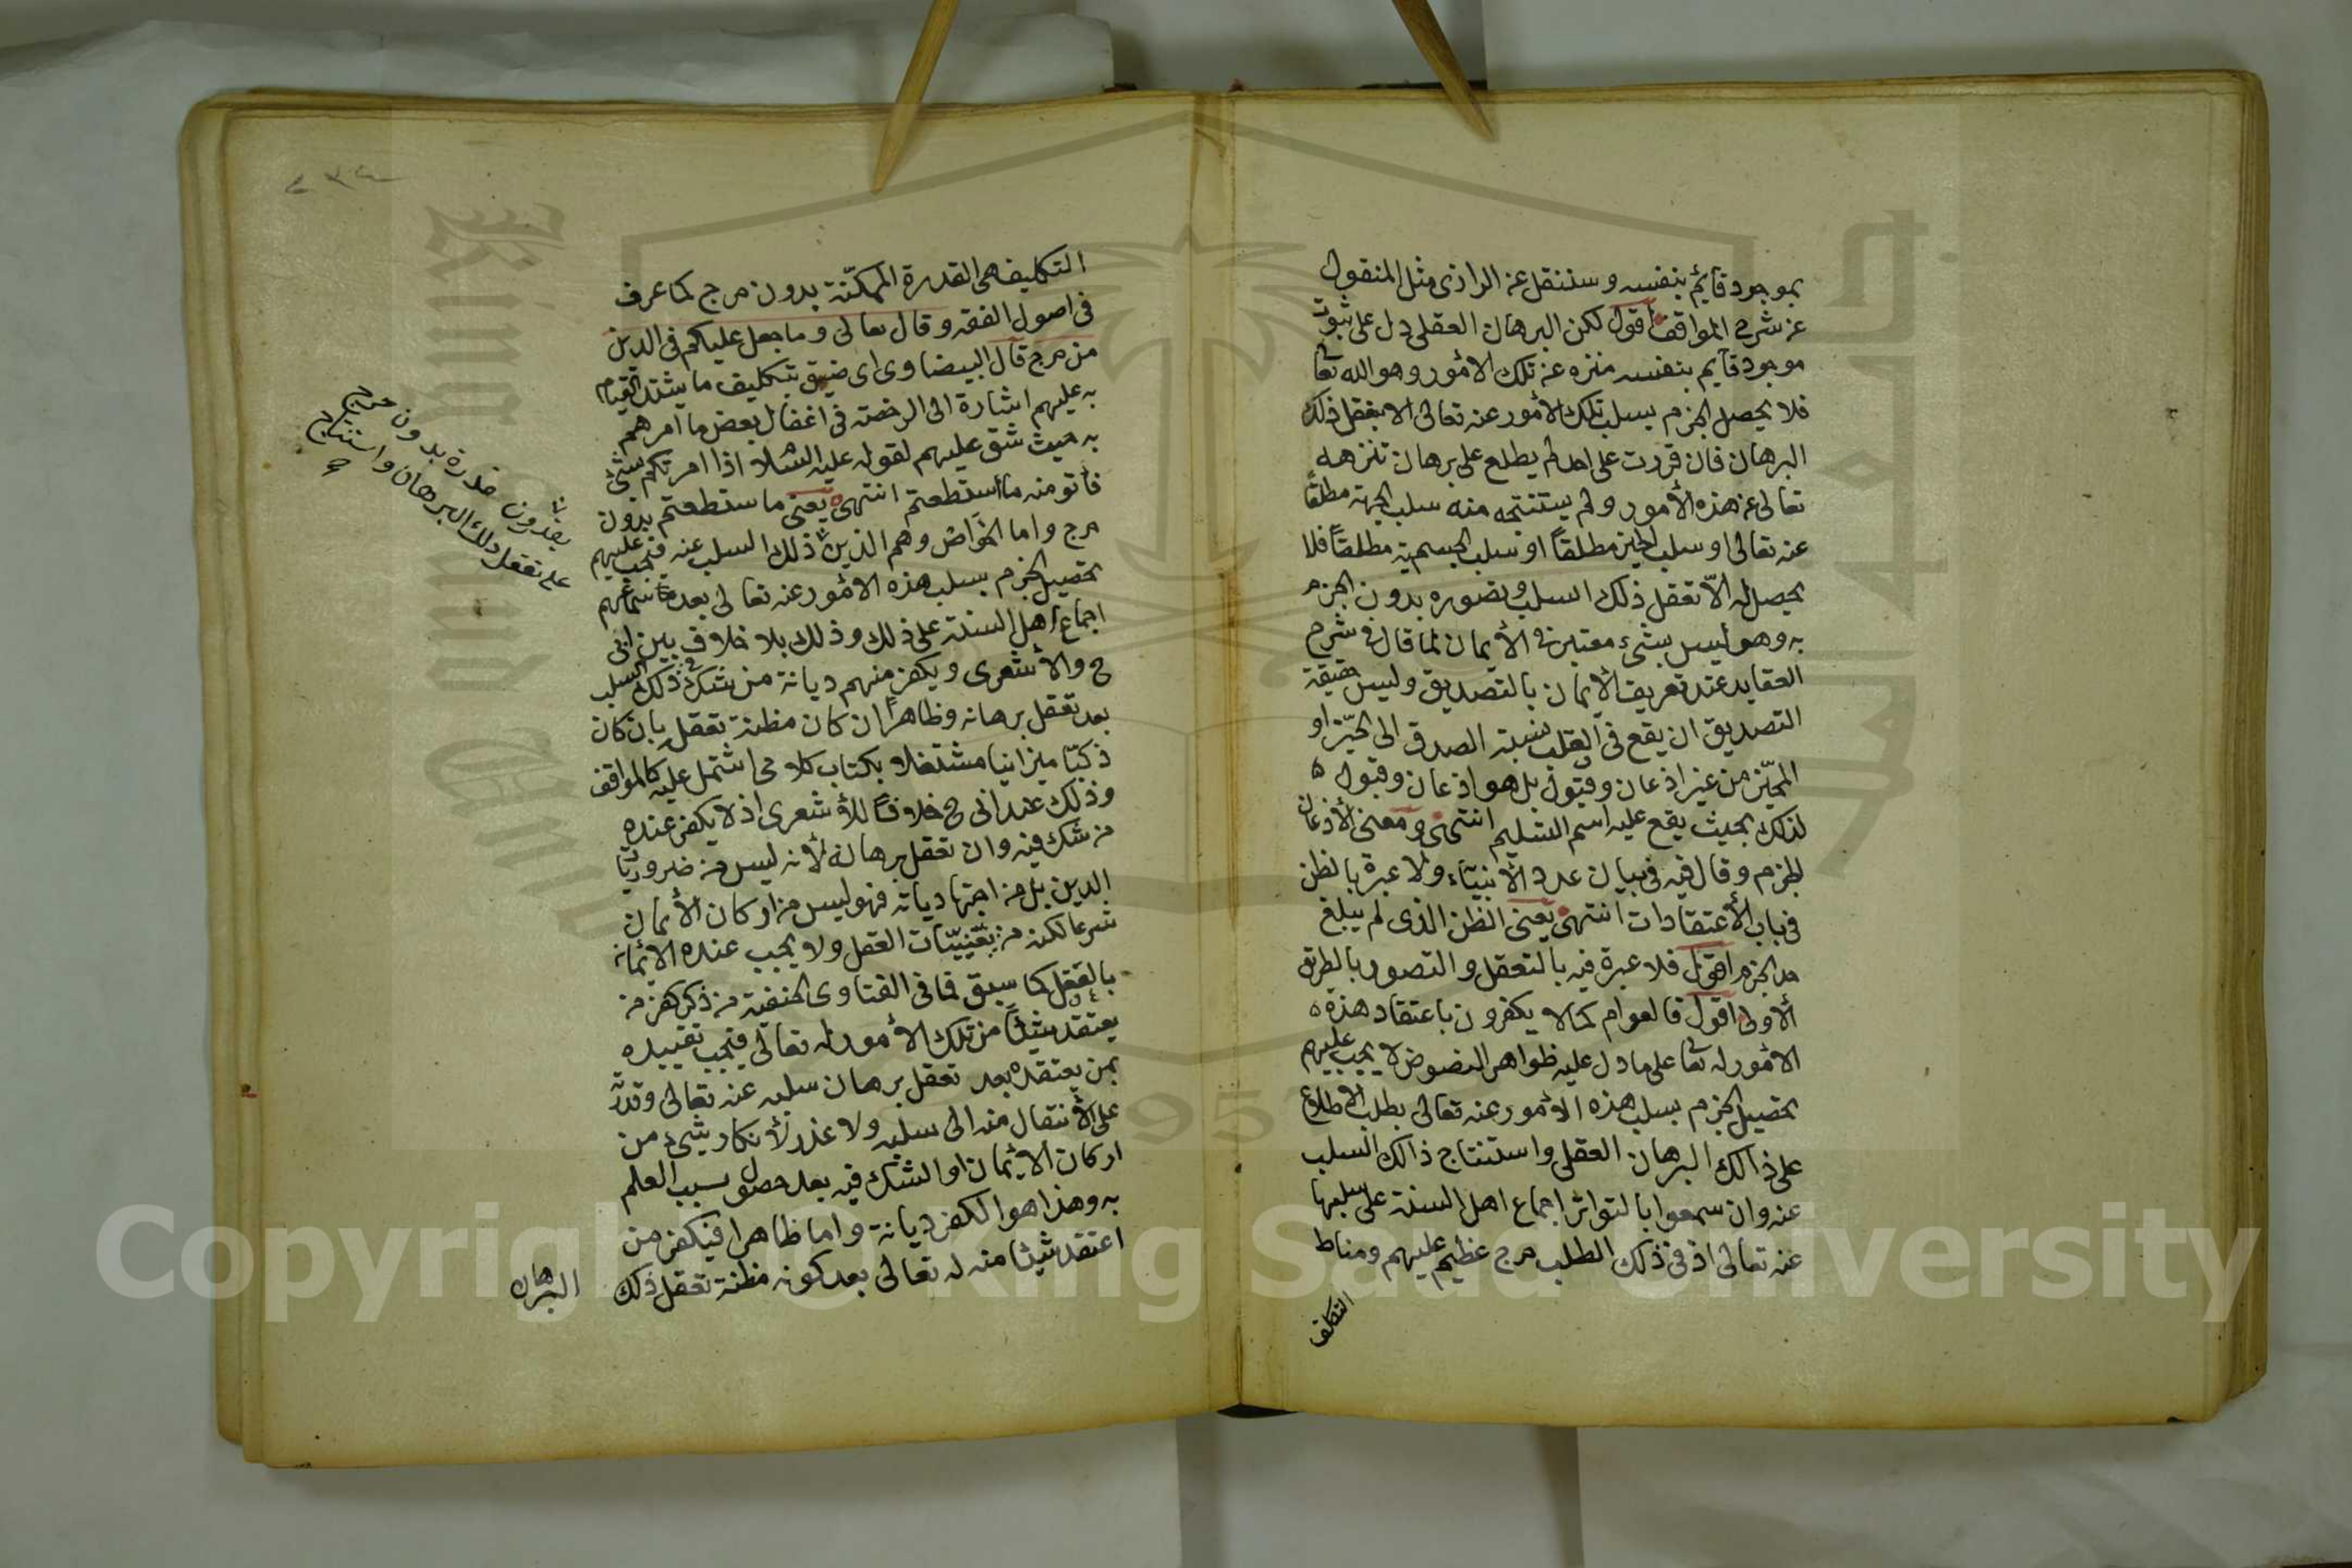 بموجود قايم بنفسه وسننقل عن الرازى مثل المنقول
عن شرح المواقف اقول لكن البرهان العقلى دل على ثبوت
موجود قايم بنفسه منزه عن تلك الامور وهو الله تعا
فلا يحصل الجزم بسلب تلك الامور عنه تعالى الا بتعقل ذلك
البرهان فان قررت على احد لم يطلع على برهان تنزهه
تعالى عن هذه الأمور ولم يستنتجه منه سلب الجهة مطلقا
عنه تعالى او سلب الحيز مطلقاً او سلب الجسمية مطلقاً فلا
يحصل له الّا تعقل ذلك السلب وتصوره بدون الجزم
به وهو ليس بشىء معتبر فى الأيمان لما قال فى شرح
العقايد عند تعريف الايمان بالتصديق وليس حقيقة
التصديق ان يقع فى القلب نسبة الصدق الى الخبر او
المخبر من غير اذعان وقبول بل هو اذعان وقبول
لذلك بحيث يقع عليه اسم التسليم انتهى ومعنى الأذعان
الجزم وقال فيه فى بيان عدد الأنبياء ولا عبرة بالظن
فى باب الأعتقادات انتهى يعنى الظن الذى لم يبلغ
حد الجزم اقول فلا عبرة فيه بالتعقل والتصور بالطريق
الأولى اقول فالعوام كما لا يكفرون باعتقاد هذه
الامور له تعا على ما دل عليه ظواهر النصوص لا يجب عليهم
تحصيل الجزم بسلب هذه الامور عنه تعالى بطلب الاطلاع
على ذالك البرهان العقلى واستنتاج ذالك السلب
عنه وان سمعوا بالتواتر اجماع اهل السنة على سلبها
عنه تعالى اذ فى ذلك الطلب حرج عظيم عليهم ومناط
التكليف
٢٣٤
التكليف هى القدرة الممكّنة بدون حرج كما عرف
فى اصول الفقه وقال تعالى وما جعل عليكم فى الدين
من حرج قال البيضاوى اى ضيق بتكليف ما يشتد القيام
به عليهم اشارة الى الرخصة فى اغفال بعض ما امرهم
به حيث شق عليهم لقوله عليه السلام اذا امرتكم بشئ
فأتو منه ما استطعتم انتهى يعنى ما ستطعتم بدون
حرج واما الخواص وهم الذين ذلك السلب عنه فيجب عليهم
تحصيل الجزم بسلب هذه الامور عنه تعالى بعد سماعهم
اجماع اهل السنة على ذلك وذلك بلا خلاف بين ابى
ح والأشعرى ويكفر منهم ديانة من شك فى ذلك السلب
بعد تعقل برهانه وظاهراً ان كان مظنة تعقل بان كان
ذكيّا ميزانيا مشتغلا بكتاب كلامى اشتمل عليه كالمواقف
وذلك عند ابى ح خلافاً للأشعرى اذ لا يكفر عنده
من شك فيه وان تعقل برهانه لأنه ليس من ضروريّا
الدين بل من اجتهادياته فهو ليس من اركان الأيمان
شرعا لكنه من يقينيّات العقل ولا يجب عنده الايمان
بالعقل كما سبق فما فى الفتاوى الحنفية من ذكر كفر من
يعتقد شيئا من تلك الأمور له تعالى فيجب تقييده
بمن يعتقده بعد تعقل برهان سلبه عنه تعالى وقدرته
على الأنتقال منه الى سلبه ولا عذر لأنكار شىء من
اركان الايمان او الشك فيه بعد حصول سبب العلم
به وهذا هو الكفر ديانة واما ظاهرا فيكفر من
اعتقد شيئا منه له تعالى بعد كونه مظنة تعقل ذلك
البرهان
يقدرون قدرة بدون حرج
على تعقل ذلك البرهان واستنتاج
Copyright © King Saud University